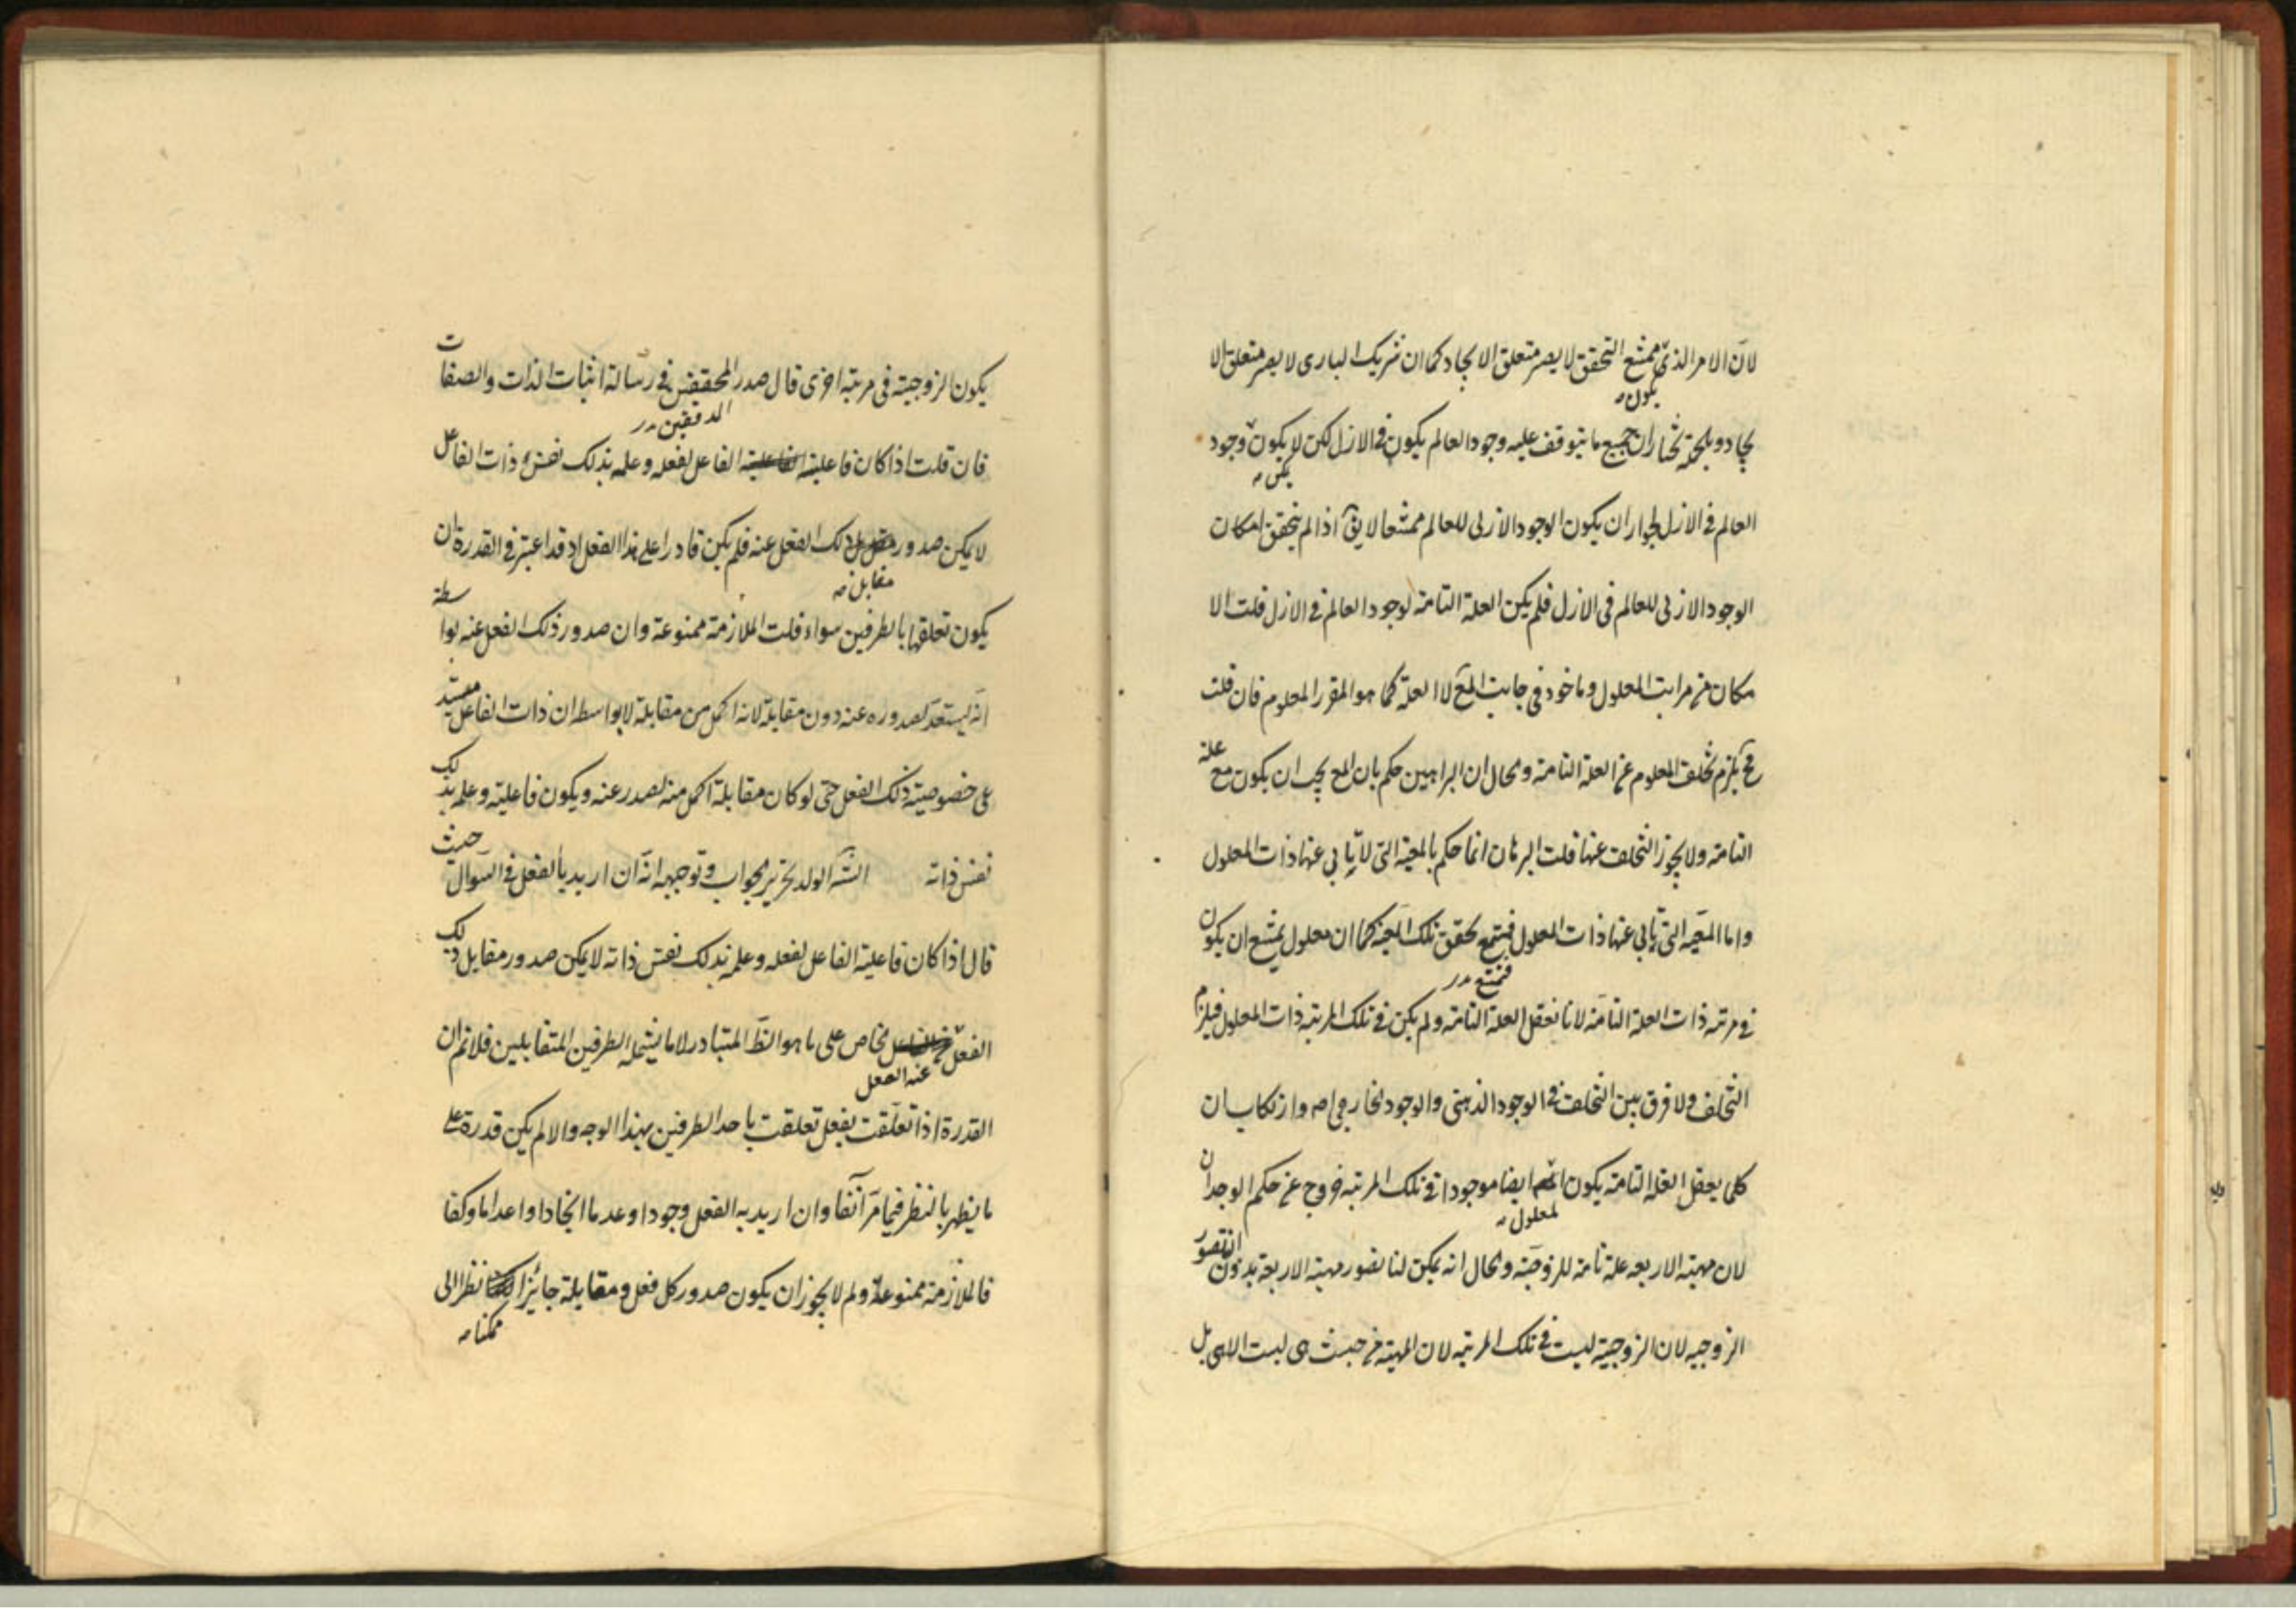 لان الامر الذی ممتنع التحقق لا یصیر متعلق الایجاد کما ان شریک الباری لا یصیر متعلق الا
یکون
یجاد و بالجملة نختار ان جمیع ما یتوقف علیه وجود العالم یکون فی الازل لکن لا یکون وجود
یمکن
العالم فی الازل لجواز ان یکون الوجود الازلی للعالم ممتنعا لا یق اذا لم یتحقق امکان
الوجود الازلی للعالم فی الازل فلم یکن العلة التامة لوجود العالم فی الازل قلت الا
مکان من مراتب المعلول و ماخوذ فی جانب المع لا العلة کما هو المقرر المعلوم فان قلت
فح یلزم تخلف المعلوم عن العلة التامة و الحال ان البراهین حکم بان المع یجب ان یکون مع علة
التامة ولا یجوز التخلف عنها قلت البرهان انما حکم بالمعیة التی لا یابی عنها ذات المعلول
واما المعیه التی یابی عنها ذات المعلول فیمتنع تحقق تلک المعیة کما ان معلول یمتنع ان یکون
فممتنع
فی مرتبه ذات العلة التامة لانا نعقل العلة التامة ولم یکن فی تلک المرتبه ذات المعلول فیلزم
التخلف ولا فرق بین التخلف فی الوجود الذهنی والوجود الخارجی وارتکاب ان
کلما یعقل العلة التامة یکون ایضا موجودا فی تلک المرتبه خروج عن حکم الوجدان
لمعلول
لان مهیة الاربعه علة تامة للزوجیه و الحال انه یمکن لنا تصور مهیة الاربعة بدون التصور
الزوجیه لان الزوجیة لیست فی تلک المرتبه لان المهیة من حیث هی لیست الا هی بل
یکون الزوجیة فی مرتبه اخری قال صدر المحققین فی رسالة اثبات الذات و الصفات
المدققین
فان قلت اذا کان فاعلیة الفاعل لفعله وعلمه بذلک نفس ذات الفاعل
لا یمکن صدور ذلک الفعل عنه فلم یکن قادرا علی هذا الفعل اذ قد اعتبر فی القدرة ان
مقابل
یکون تعلقها بالطرفین سواء قلت الملازمة ممنوعة وان صدور ذلک الفعل عنه بواسطة
انه یستعد لصدوره عنه دون مقابلة لانه اکمل من مقابلة لا بواسطه ان ذات الفاعل
علی خصوصیة ذلک الفعل حتی لو کان مقابلة اکمل منه لصدر عنه ویکون فاعلیته وعلمه بذلک
نفس ذاته الولد تحریر الجواب و توجیهه انه ان ارید بالفعل فی السؤال حیث
قال اذا کان فاعلیة الفاعل لفعله وعلمه بذلک نفس ذاته لا یمکن صدور مقابل ذلک
الفعل خاص علی ما هو الظ المتبادر لا ما یشمله الطرفین المتقابلین فلانم ان
عنه الفعل
القدرة اذا تعلقت بفعل تعلقت باحد الطرفین بهذا الوجه والا لم یکن قدرة علی
ما یظهر بالنظر فیما مر آنفا وان ارید به الفعل وجودا وعدما ایجادا واعداما وکفا
فالملازمة ممنوعة ولم لا یجوز ان یکون صدور کل فعل و مقابلة جائزا نظرا الی
ممکنا